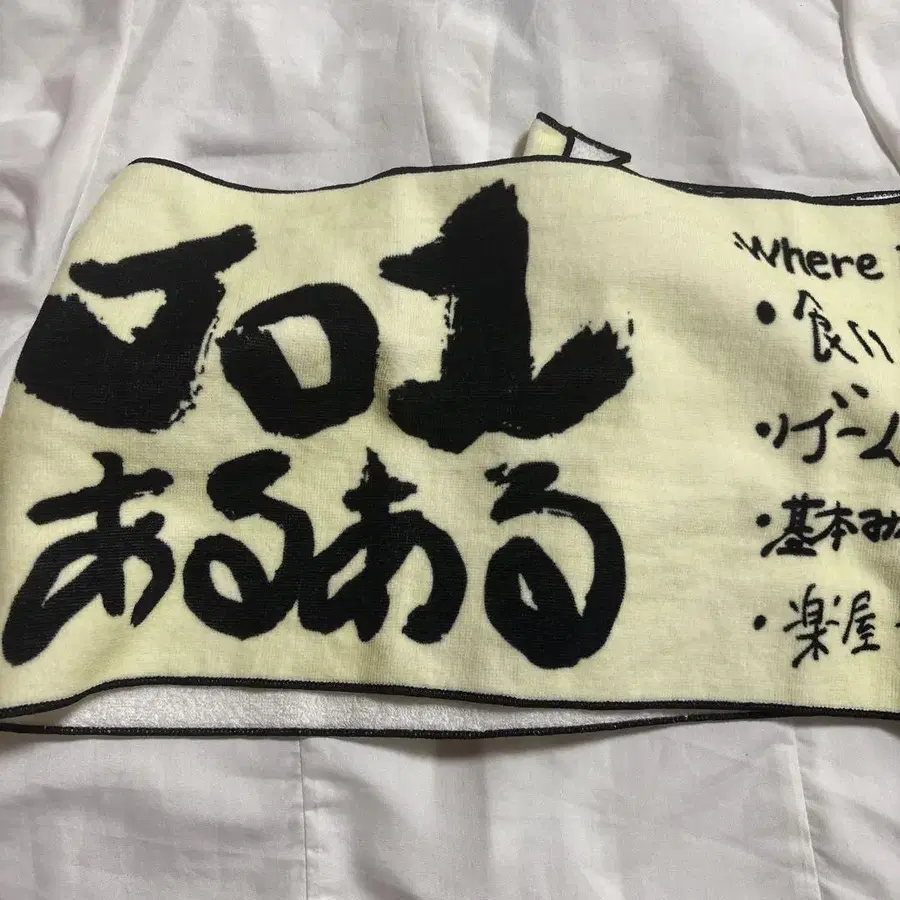 JO1
あるある
Where
・食い
・ゲーム
・基本み
・楽屋